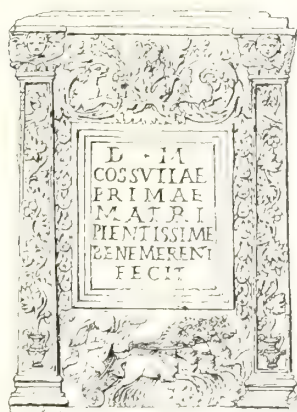 D · M
COSSVTIAE
PRIMAE
MATRI
PIENTISSIME
BENEMERENT
FECIT